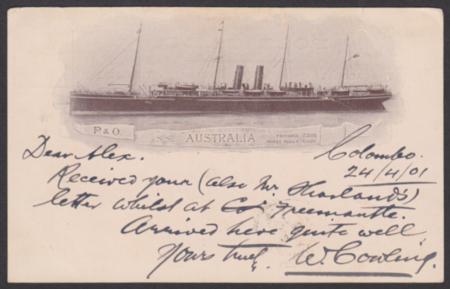 P & O.
AUSTRALIA
Dear Alex.
Colombo.
24/4/01
Received your (also Mr.
letter whilst at Freemantle.
Arrived here quite well
Yours truly.
W. Cowling.